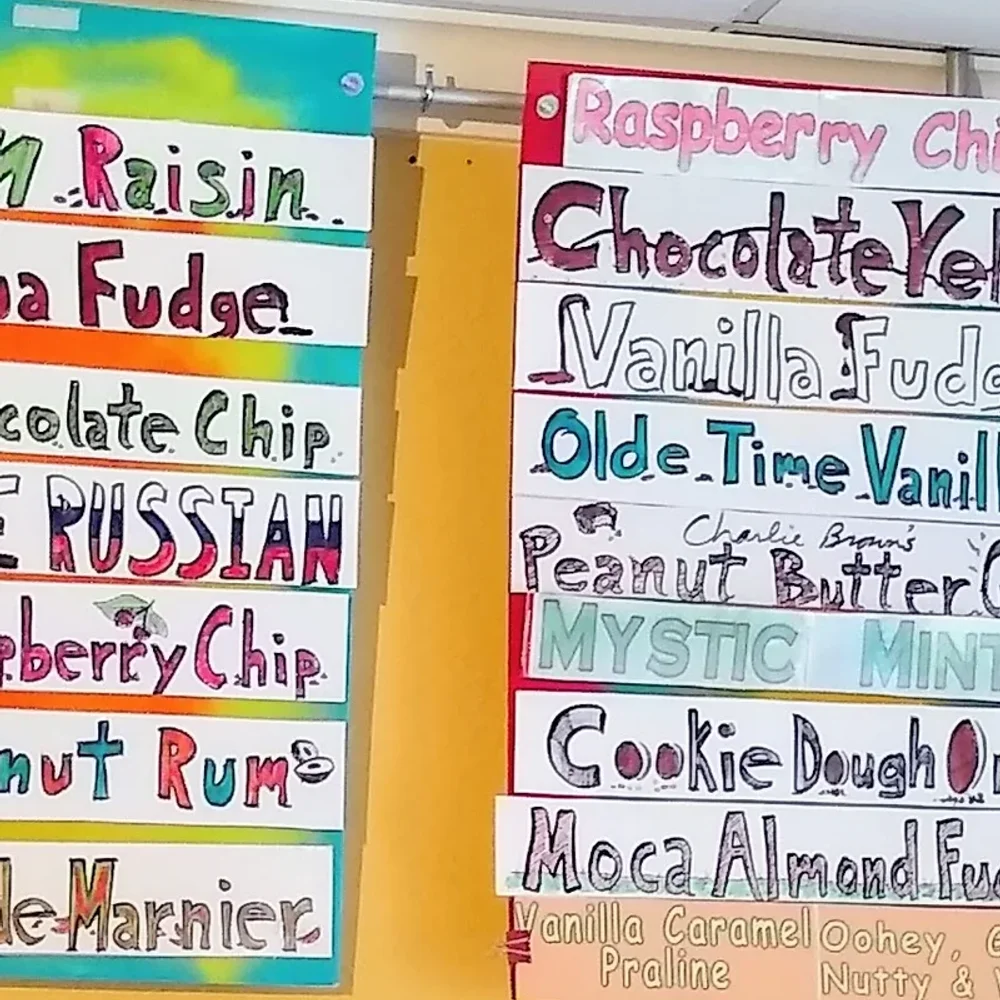 Raisin
Fudge
Chocolate Chip
RUSSIAN
Chip
Rum
Marnier
Raspberry Chi
Chocolate Yel
Vanilla Fudg
Olde Time Vanill
Charlie Brown's
Peanut Butter C
MYSTIC MINT
Cookie Dough Or
Moca Almond Fud
Vanilla Caramel
Praline
Oohey, G
Nutty &